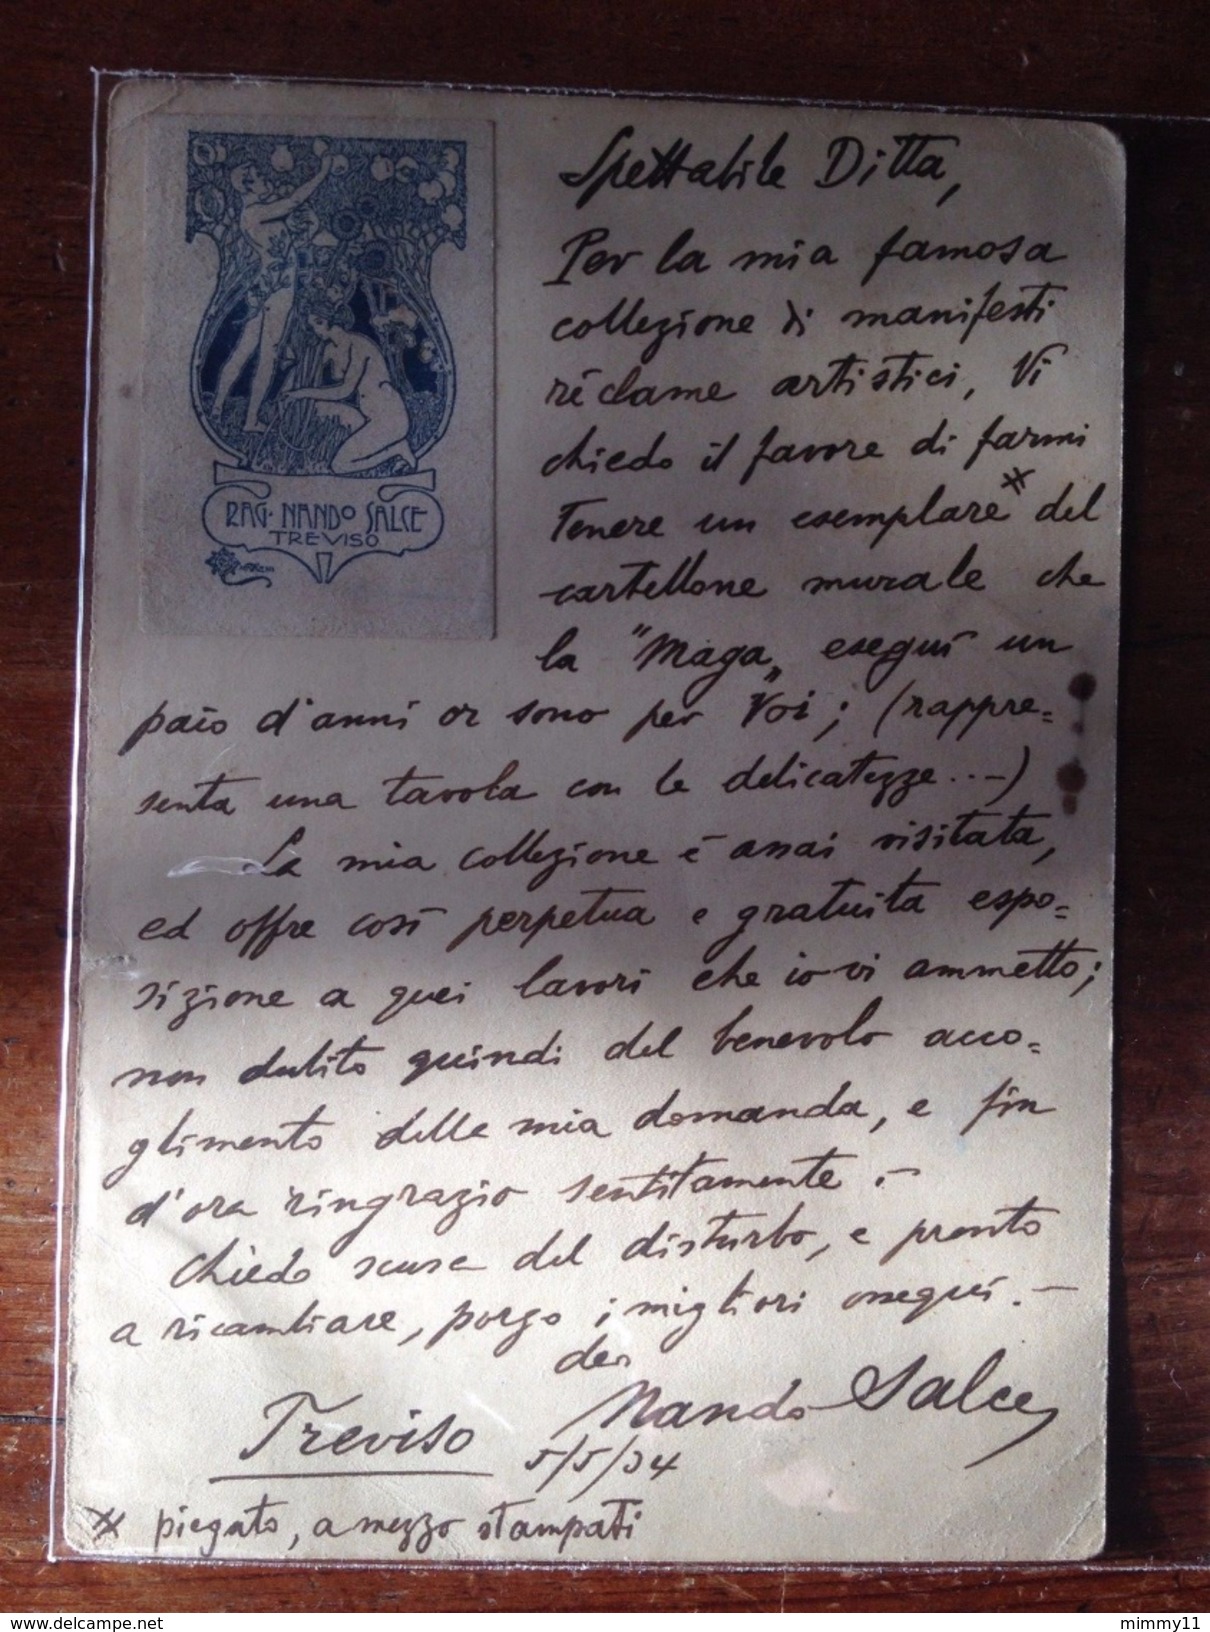 Spettabile Ditta,
Per la mia famosa
collezione di manifesti
réclame artistici, Vi
chiedo il favore di farmi
tenere un esemplare # del
cartellone murale che
la "Maga„ eseguì un
paio d'anni or sono per Voi; (rappre=
senta una tavola con le delicatezze...-)
La mia collezione è assai visitata,
ed offre così perpetua e gratuita espo=
sizione a quei lavori che io vi ammetto;
non dubito quindi del benevolo acco=
glimento della mia domanda, e fin
d'ora ringrazio sentitamente.-
Chiedo scuse del disturbo, e pronto
a ricambiare, porgo i migliori ossequi.-
Nando Salce
Treviso 5/5/34
# piegato, a mezzo stampati
RAG. NANDO SALCE
TREVISO
delcampe.net
mimmy11